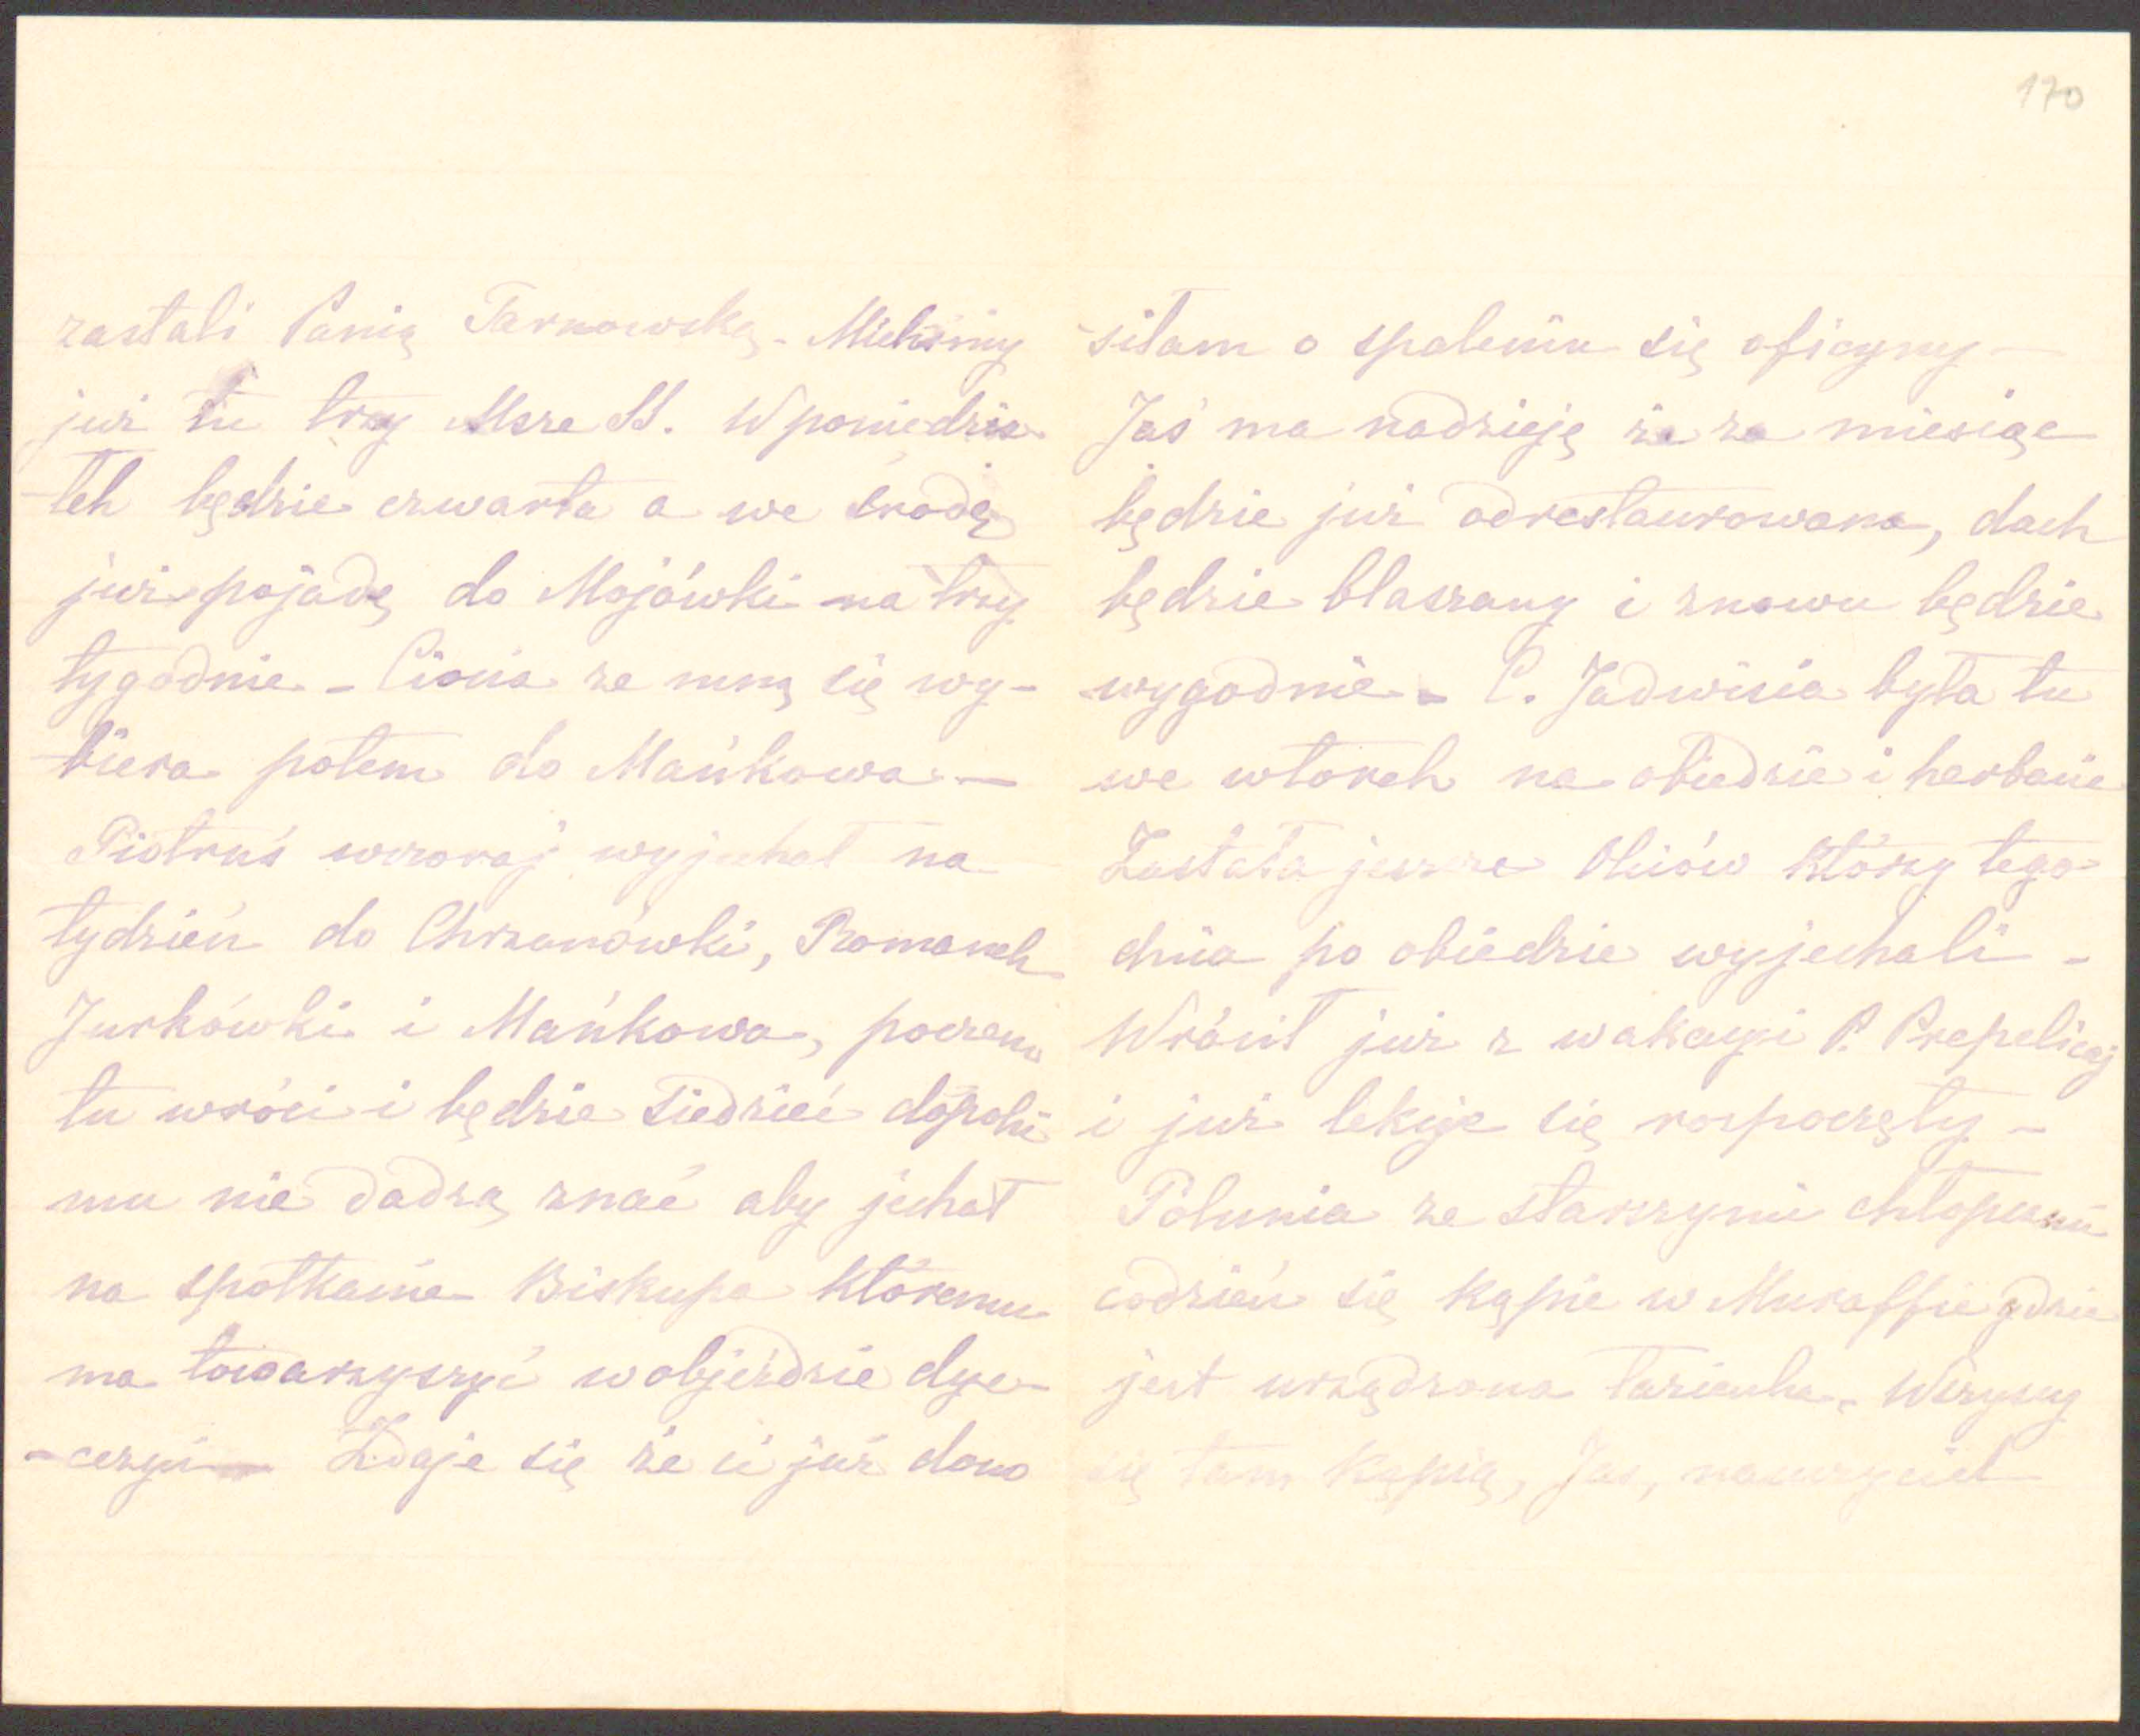 170
zastali Panią Tarnowską. Mieliśmy
już tu trzy Msze SS. W poniedzia
-łek będzie czwarta a we środę
już pojadę do Mojówki na trzy
tygodnie - Ciocia ze mną się wy-
-biera potem do Mańkowa. —
Piotruś wczoraj wyjechał na
tydzień do Chrzanówki, Romanek
Jurkówki i Mańkowa, poczem
tu wróci i będzie siedzieć dopóki
mu nie dadzą znać aby jechał
na spotkanie Biskupa któremu
ma towarzyszyć w objeździe dye-
-cezyi — Zdaje się że ci już dono
siłam o spaleniu się oficyny —
Jaś ma nadzieję że za miesiąc
będzie już odrestaurowana, dach
będzie blaszany i znowu będzie
wygodnie. C. Jadwisia była tu
we wtorek na obiedzie i herbacie
Zastała jeszcze którzy tego
dnia po obiedzie wyjechali -
Wrócił już z wakacyi P. Prepelicaj
i już lekcje się rozpoczęły -
Polunia ze starszymi chłopcami
codzień się kąpie w Muraffie gdzie
jest urządzona łazienka. Wszyscy
się tam kąpią, Jaś, nauczyciel